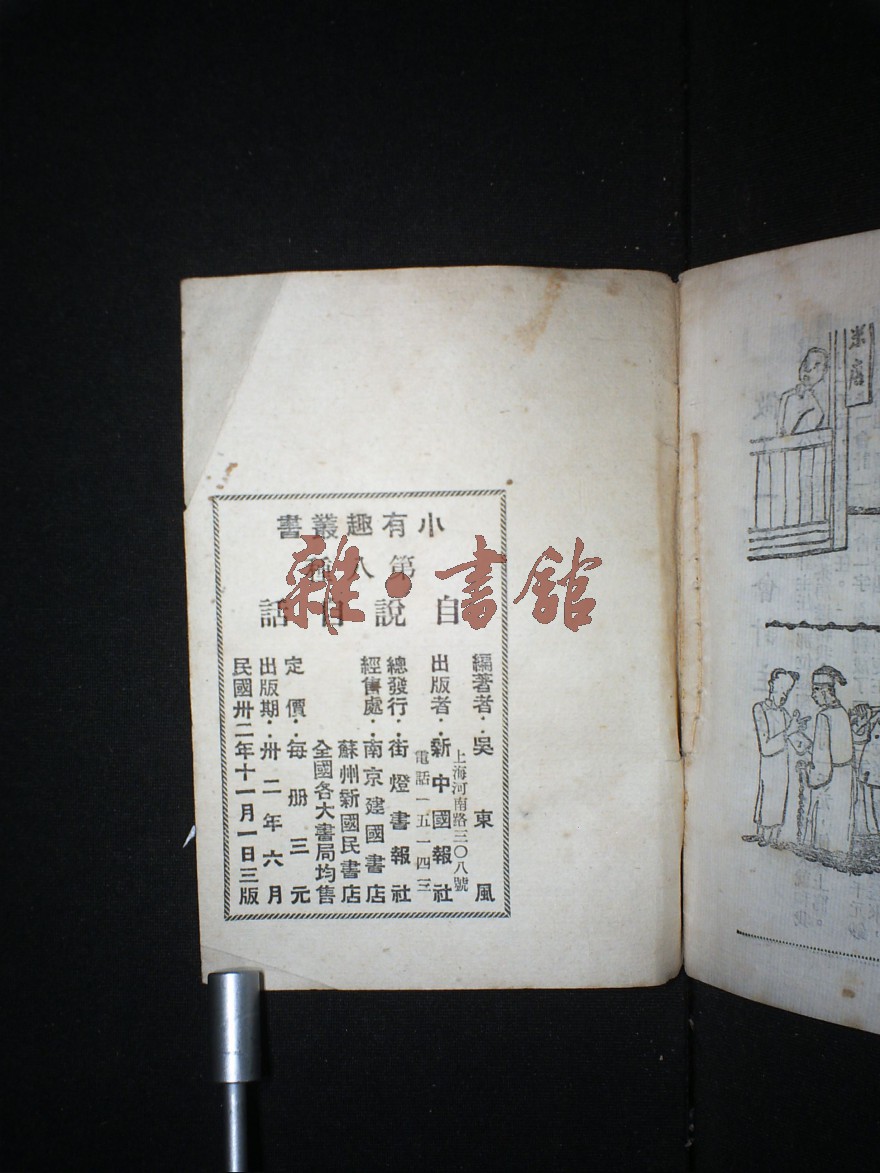 小有趣叢書
第八種
自說自話
編著者・吳東風
出版者・新中國報社
上海河南路三〇八號
電話一五一四三
總發行・街燈書報社
經售處・南京建國書店
蘇州新國民書店
全國各大書局均售
定價・每册三元
出版期・卅二年六月
民國卅二年十一月一日三版
雜・書館
米店